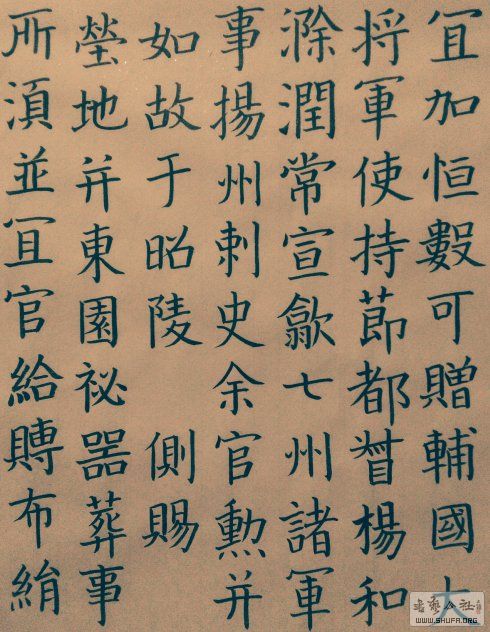 冝加恒數可贈輔國大
将軍使持節都督楊和
滁潤常宣歙七州諸軍
事揚州刺史余官勲并
如故于昭陵 側賜
塋地并東園祕器葬事
所湏並冝官給賻布絹
WWW.SHUFA.ORG